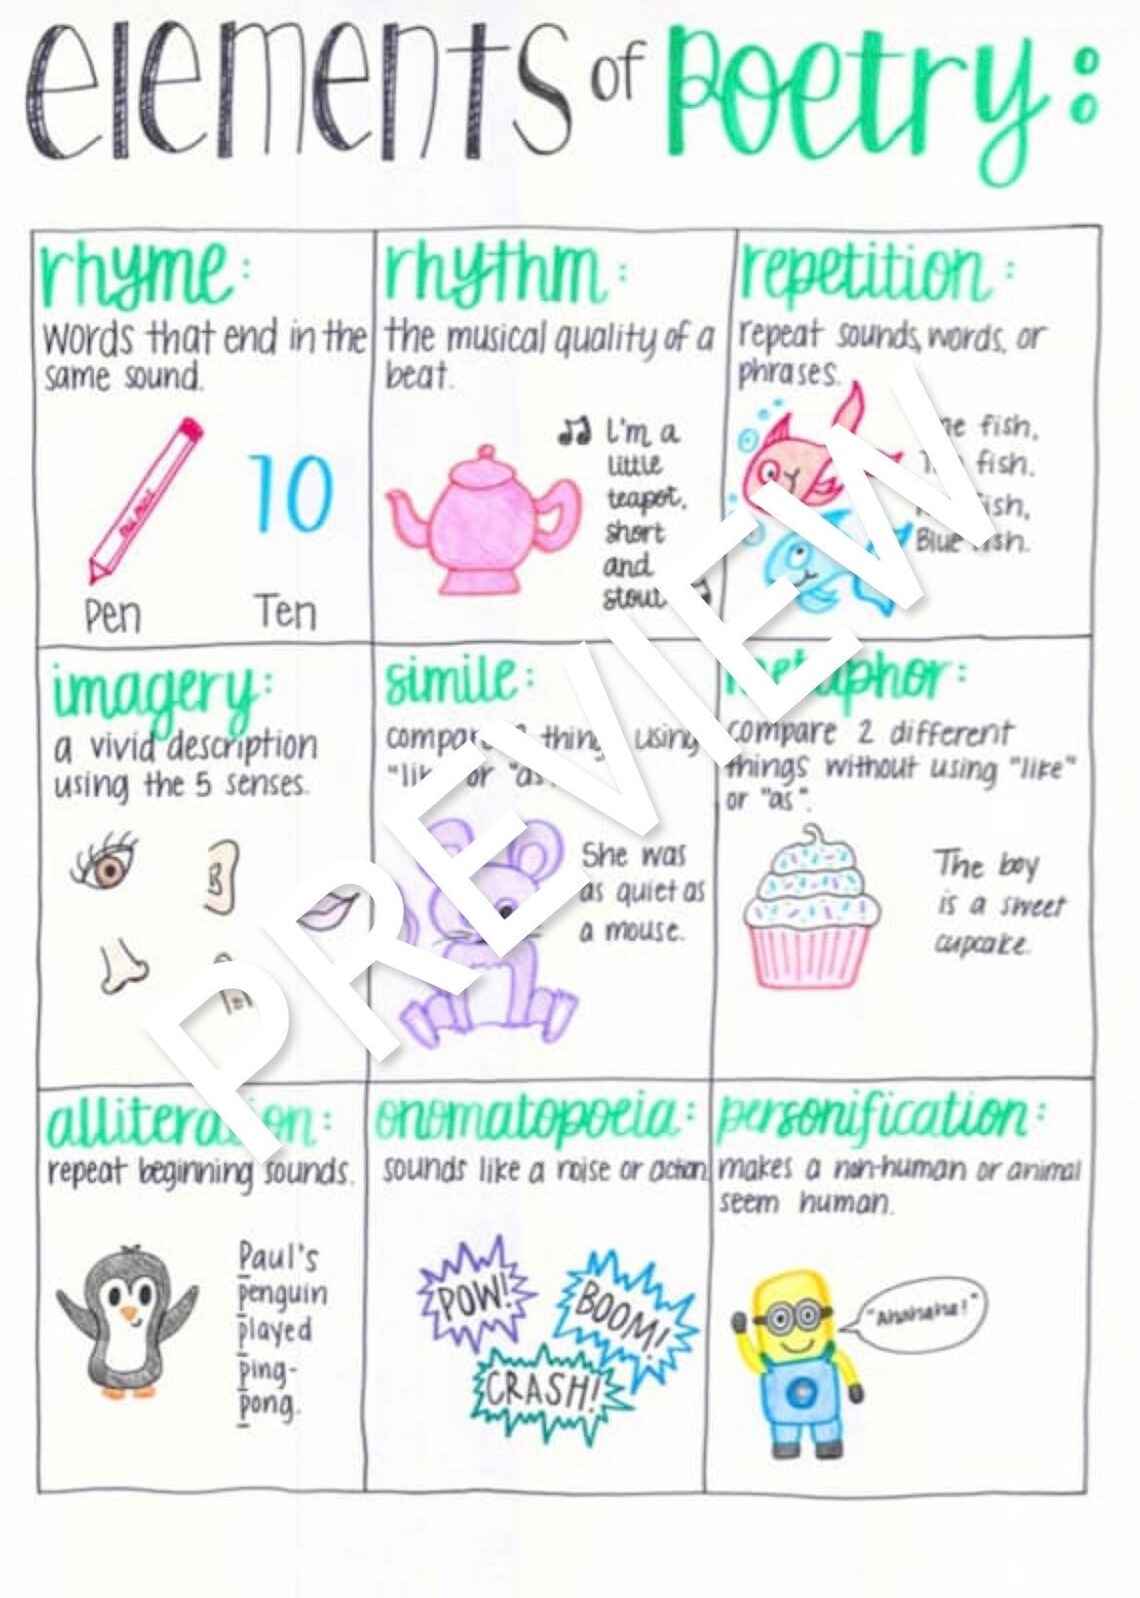 elements of Poetry:
rhyme:
words that end in the
same sound.
10
Pen
Ten
rhythm:
the musical quality of a
beat.
I'm a
little
teapot,
short
and
stout
repetition:
repeat sounds, words, or
phrases.
fish,
fish.
fish,
Blue fish.
imagery:
a vivid description
using the 5 senses.
simile:
compare 2 things using
"like" or "as".
She was
as quiet as
a mouse.
metaphor:
compare 2 different
things without using "like"
or "as".
The boy
is a sweet
cupcake.
alliteration:
repeat beginning sounds.
Paul's
penguin
played
ping-
pong.
onomatopoeia:
sounds like a noise or action
POW!
BOOM!
CRASH!
personification:
makes a non-human or animal
seem human.
"Ahahaha!"
PREVIEW